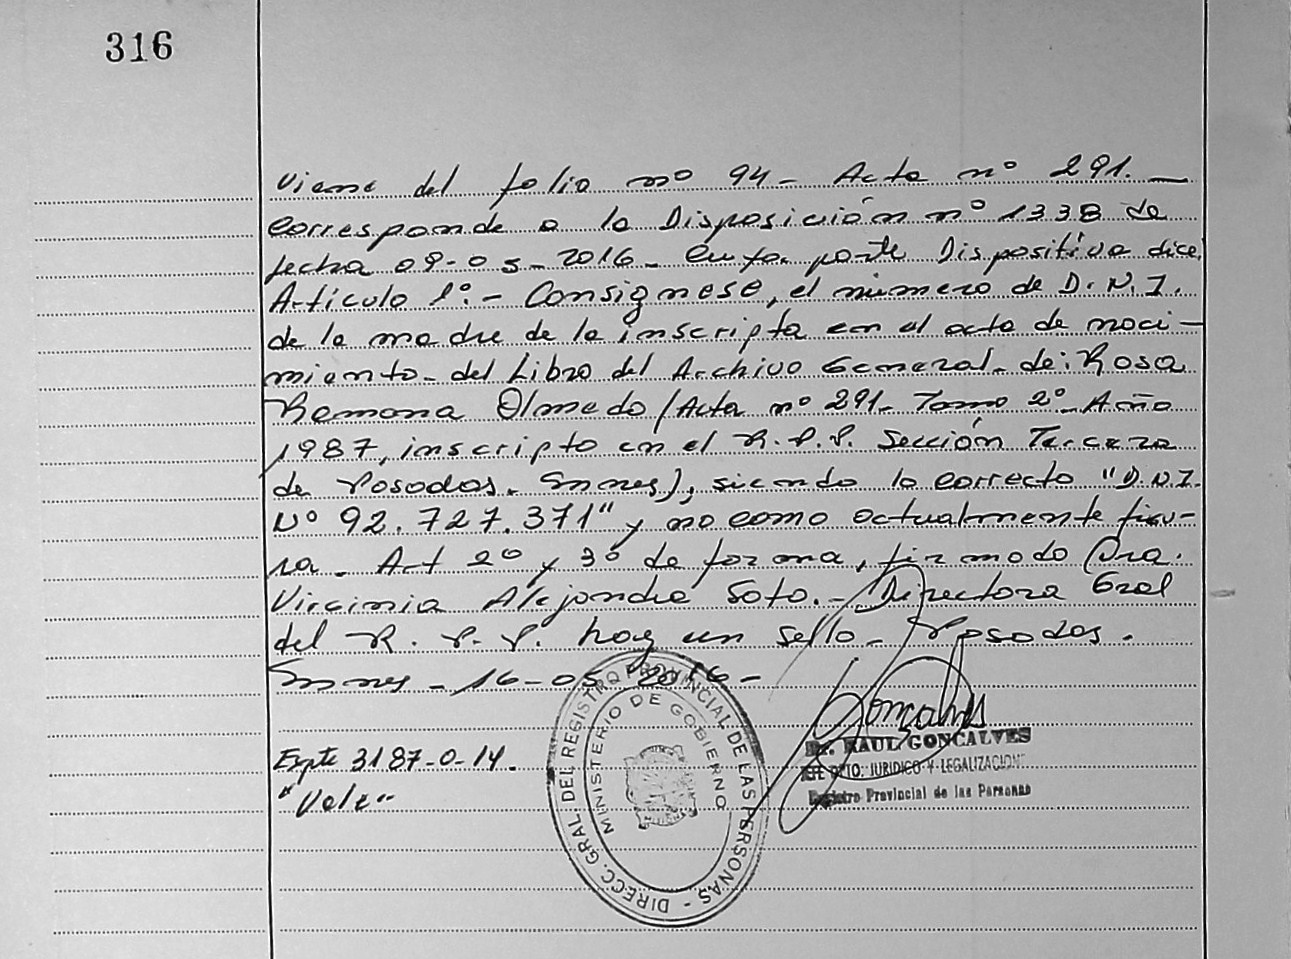 316
Viene del folio nº 94 - Acta nº 291. —
Corresponde a la Disposición nº 1338 de
fecha 09-05-2016 - cuya parte Dispositiva dice,
Artículo 1º. - Consignese, el número de D.N.I.
de la madre de la inscripta en el acta de naci-
miento - del Libro del Archivo General - de: Rosa
Ramona Olmedo (Acta nº 291 - Tomo 2º - Año
1987, inscripto en el R.P.P. Sección Tercera
de Posadas. Mnes), siendo lo correcto "D.N.I.
Nº 92.727.371" y no como actualmente figu-
ra - Art 2º y 3º de forma, firmado Dra.
Virginia Alejandra Soto. - Directora Gral
del R.P.P. hay un sello - Posadas.
Mnes - 16-05-2016 -
Expte 3187-0-14.
"Vale"
DIRECC. GRAL DEL REGISTRO PROVINCIAL DE LAS PERSONAS -
MINISTERIO DE GOBIERNO
Goncalves
Dr. RAUL GONCALVES
JEFE DPTO. JURIDICO Y LEGALIZACION
Registro Provincial de las Personas